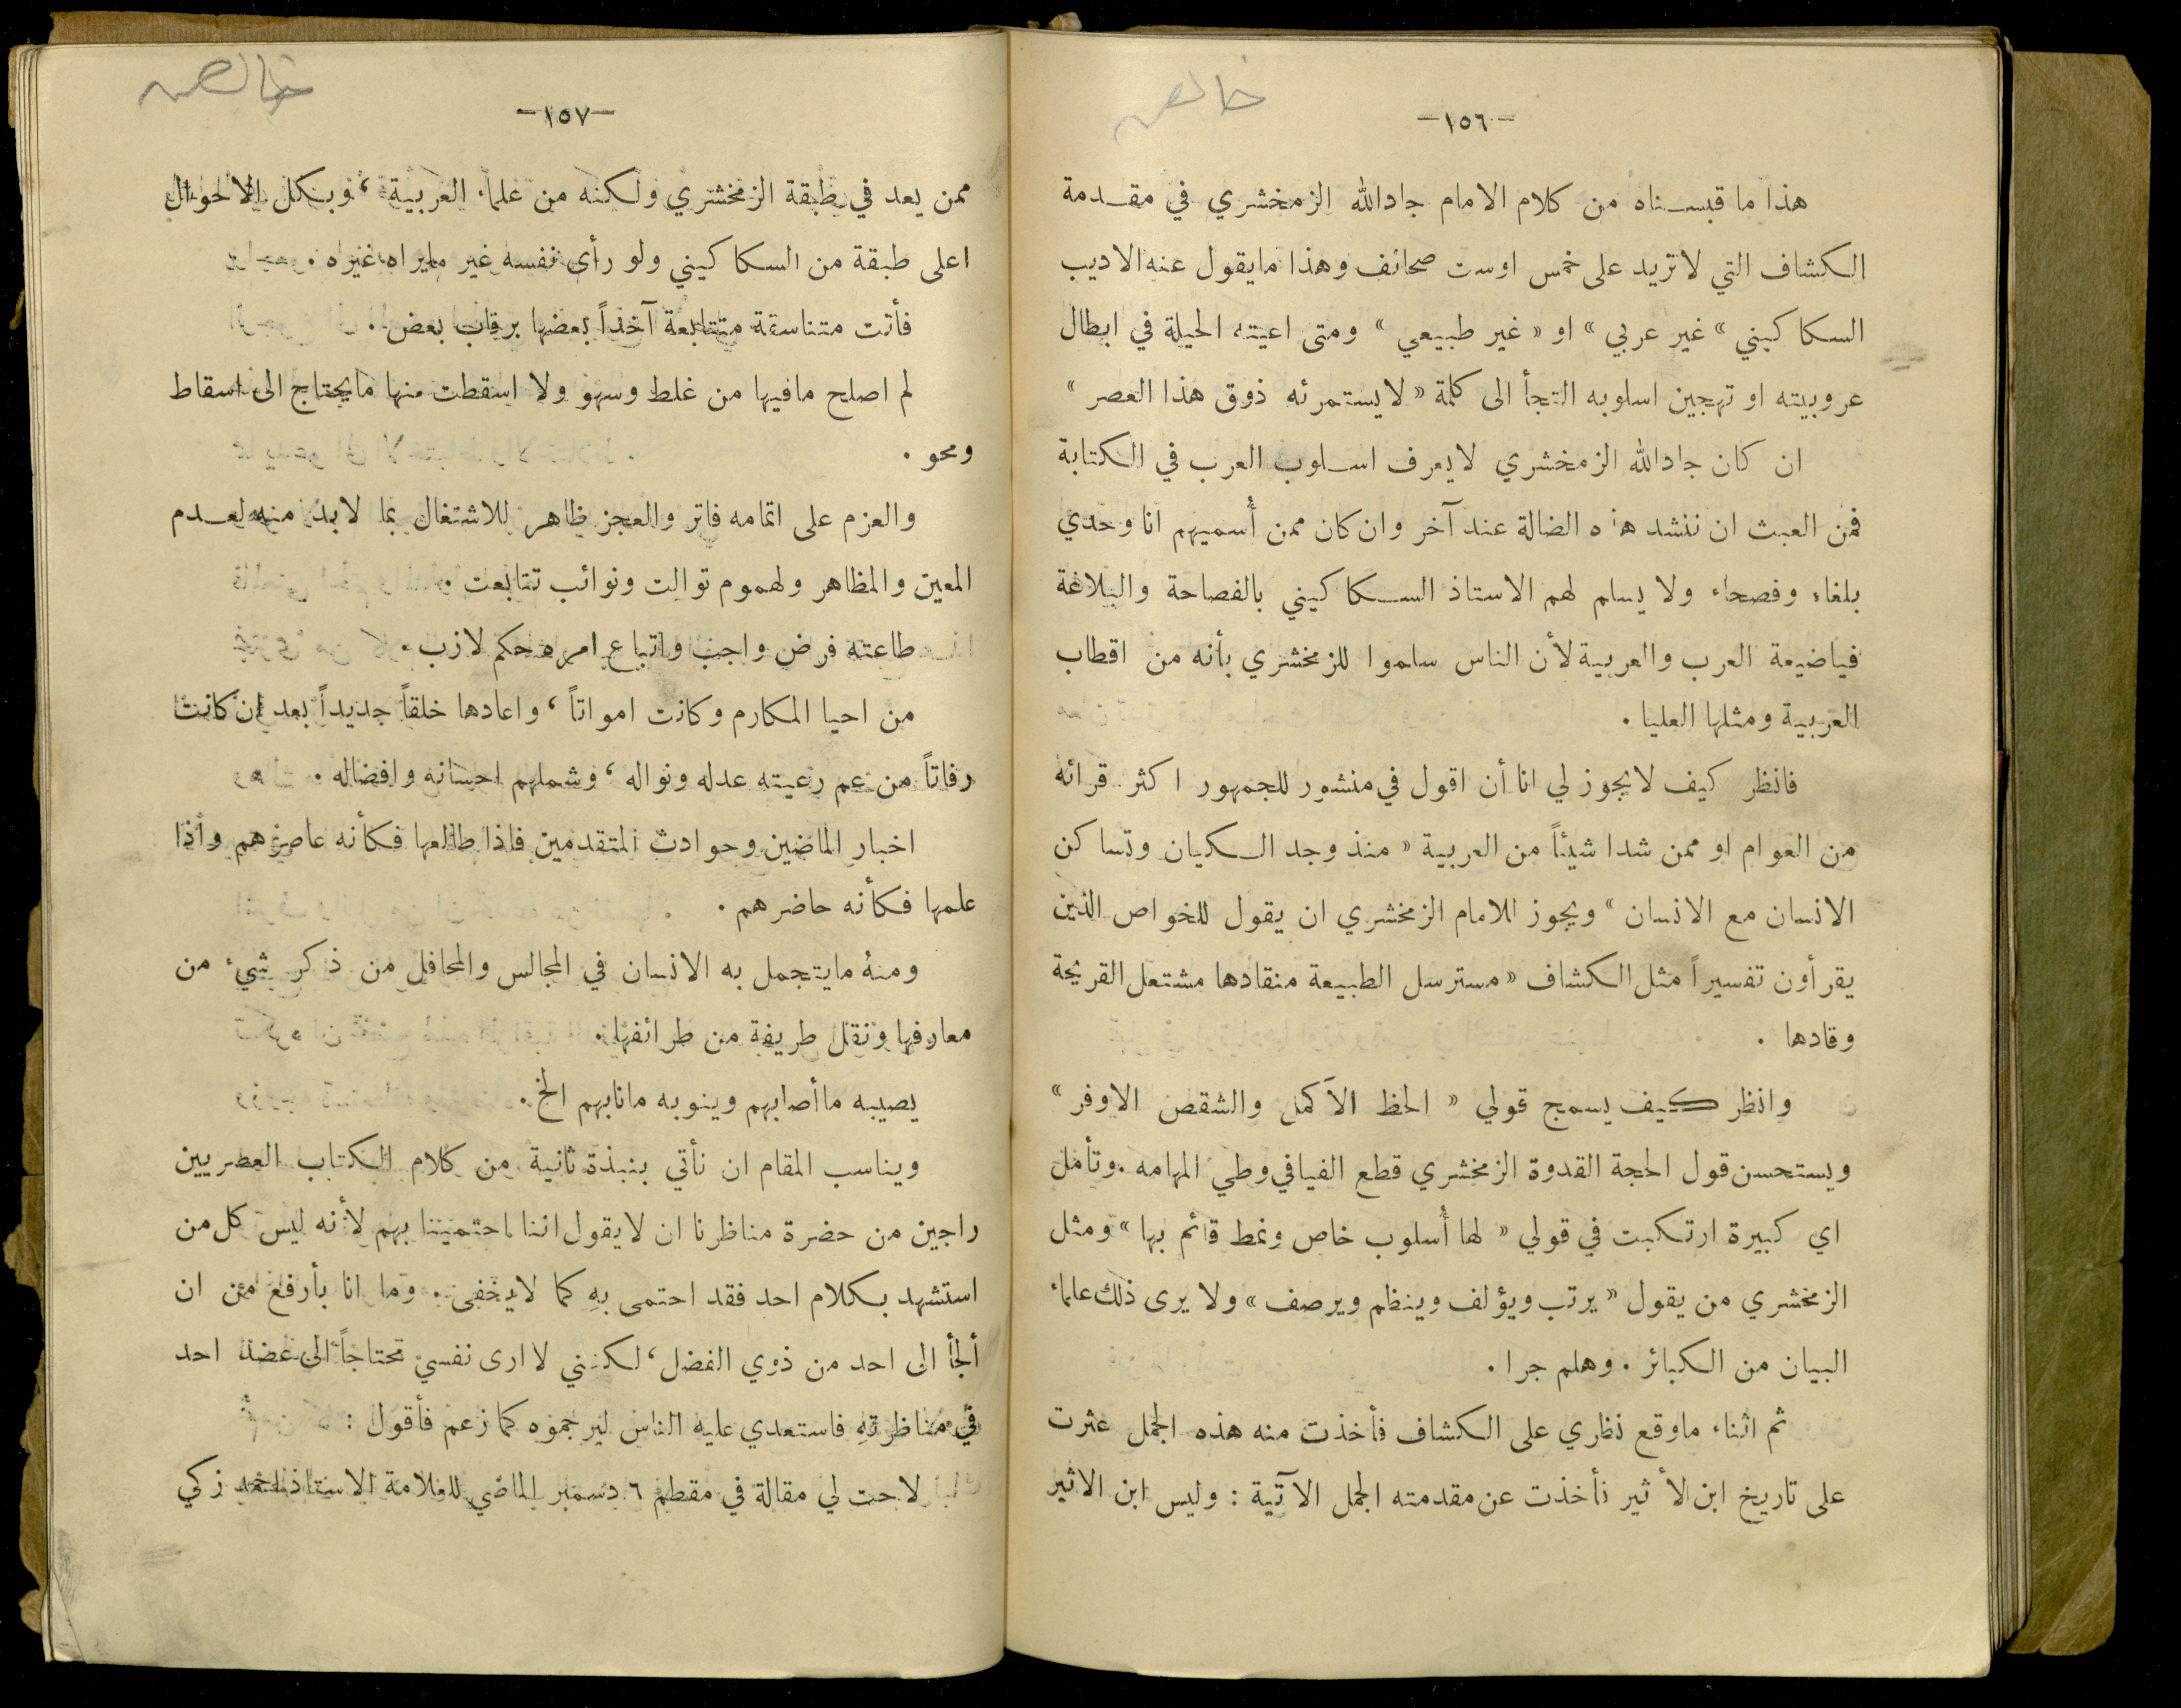 خالص
-١٥٦-
هذا ما قبسناه من كلام الامام جادالله الزمخشري في مقدمة
الكشاف التي لاتزيد على خمس اوست صحائف وهذا مايقول عنه الاديب
السكاكيني «غير عربي» او «غير طبيعي» ومتى اعيته الحيلة في ابطال
عروبيته او تهجين اسلوبه التجأ الى كلمة «لايستمرئه ذوق هذا العصر»
ان كان جادالله الزمخشري لايعرف اسلوب العرب في الكتابة
فمن العبث ان ننشد هذه الضالة عند آخر وان كان ممن أسميهم انا وحدي
بلغاء وفصحاء ولا يسلم لهم الاستاذ السكاكيني بالفصاحة والبلاغة
فياضيعة العرب والعربية لأن الناس سلموا للزمخشري بأنه من اقطاب
العربية ومثلها العليا .
فانظر كيف لايجوز لي انا أن اقول في منشور للجمهور اكثر قرائه
من العوام او ممن شدا شيئاً من العربية «منذ وجد الكيان وتساكن
الانسان مع الانسان» ويجوز للامام الزمخشري ان يقول للخواص الذين
يقرأون تفسيراً مثل الكشاف «مسترسل الطبيعة منقادها مشتعل القريحة
وقادها .
وانظر كيف يسمج قولي «الحظ الاكمل والشقص الاوفر»
ويستحسن قول الحجة القدوة الزمخشري قطع الفيافي وطي المهامه . وتأمل
اي كبيرة ارتكبت في قولي «لها أسلوب خاص ونمط قائم بها» ومثل
الزمخشري من يقول «يرتب ويؤلف وينظم ويرصف» ولا يرى ذلك علماء
البيان من الكبائر . وهلم جرا .
ثم اثناء ماوقع نظري على الكشاف فأخذت منه هذه الجمل عثرت
على تاريخ ابن الأثير فأخذت عن مقدمته الجمل الآتية : وليس ابن الاثير
خالص
-١٥٧-
ممن يعد في طبقة الزمخشري ولكنه من علماء العربية ، وبكل الاحوال
اعلى طبقة من السكاكيني ولو رأى نفسه غير مايراه غيره .
فأتت متناسقة متتابعة آخذاً بعضها برقاب بعض .
لم اصلح مافيها من غلط وسهو ولا اسقطت منها مايحتاج الى اسقاط
ومحو .
والعزم على اتمامه فاتر والعجز ظاهر للاشتغال بما لابد منه لعدم
المعين والمظاهر ولهموم توالت ونوائب تتابعت .
طاعته فرض واجب واتباع امره حكم لازب .
من احيا المكارم وكانت امواتاً ، واعادها خلقاً جديداً بعد ان كانت
رفاتاً من عم رعيته عدله ونواله ، وشملهم احسانه وافضاله .
اخبار الماضين وحوادث المتقدمين فاذا طالعها فكأنه عاصرهم واذا
علمها فكأنه حاضرهم .
ومنهُ مايتجمل به الانسان في المجالس والمحافل من ذكر شيء من
معارفها ونقل طريفة من طرائفها .
يصيبه ماأصابهم وينوبه مانابهم الخ .
ويناسب المقام ان نأتي بنبذة ثانية من كلام الكتاب العصريين
راجين من حضرة مناظرنا ان لايقول اننا احتمينا بهم لأنه ليس كل من
استشهد بكلام احد فقد احتمى بهِ كما لايخفى . وما انا بأرفع من ان
ألجأ الى احد من ذوي الفضل ، لكنني لا ارى نفسي محتاجاً الى عضد احد
في مناظرتهِ فاستعدي عليه الناس ليرجموه كما زعم فأقول :
لاحت لي مقالة في مقطم ٦ دسمبر الماضي للعلامة الاستاذ احمد زكي